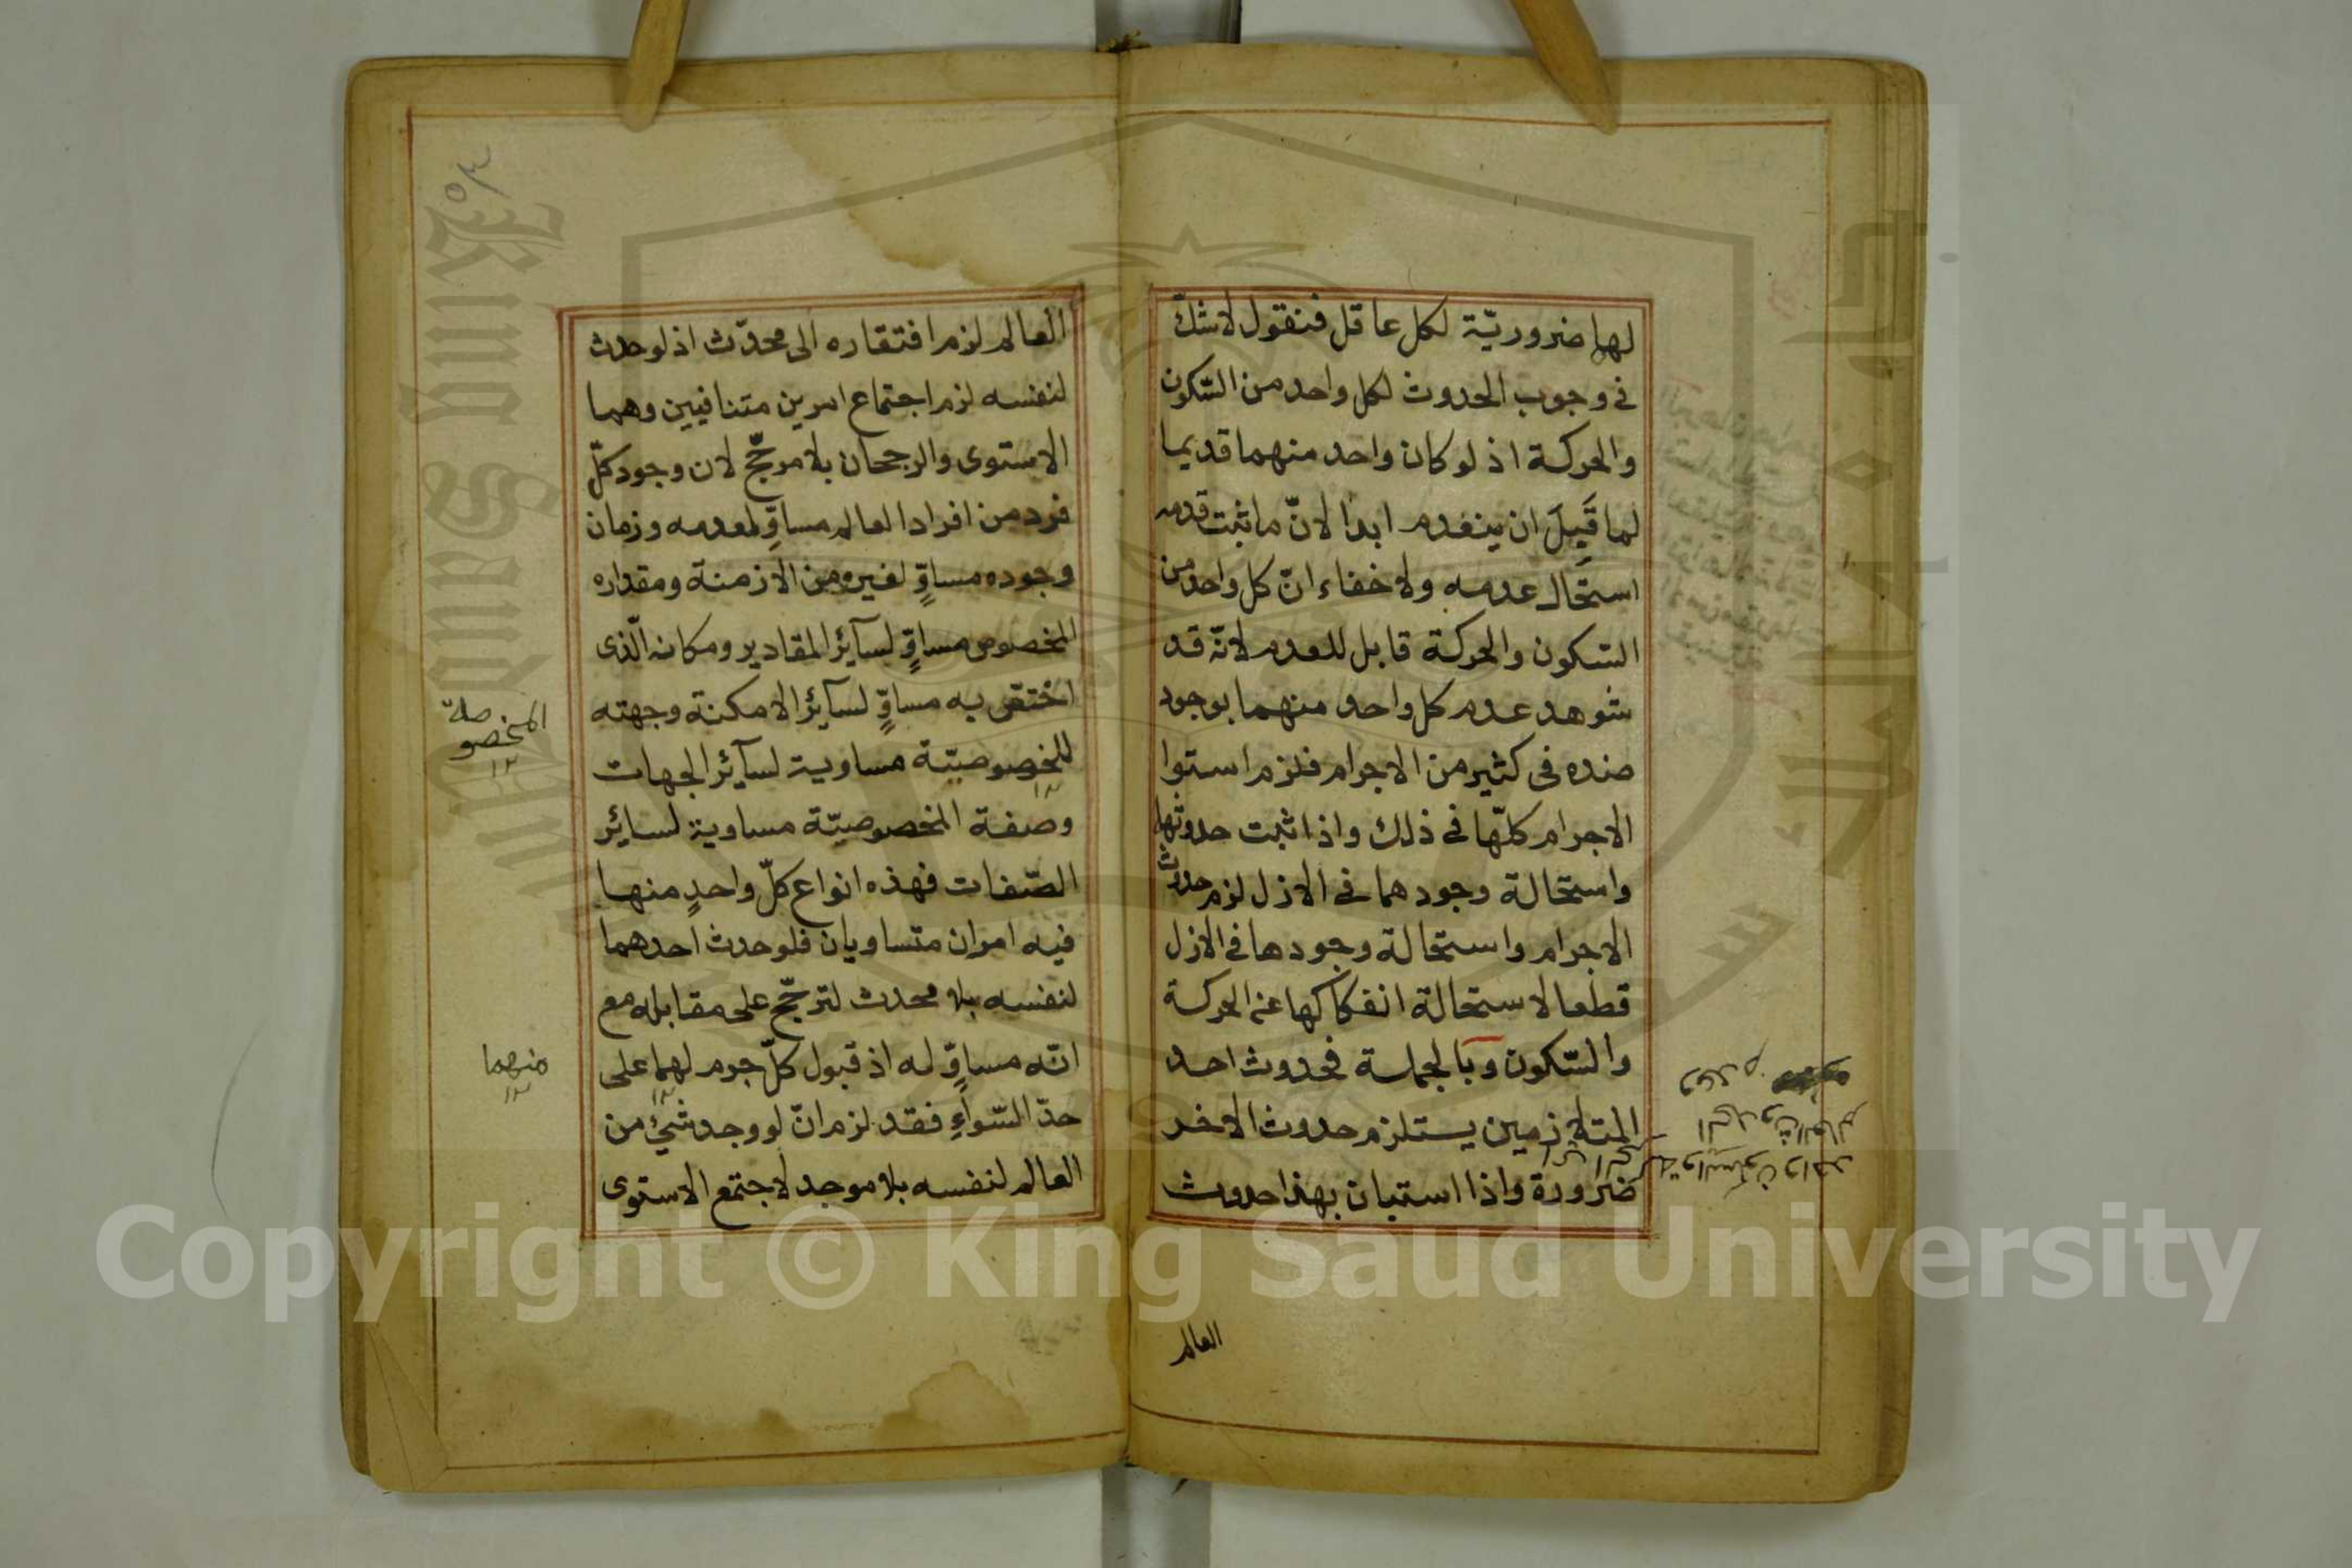 لها ضروريّة لكل عاقل فنقول لا شكّ
فى وجوب الحدوث لكل واحد من السّكون
والحركة اذ لو كان واحد منهما قديما
لما قَبِلَ ان ينعدم ابدا لانّ ما ثبت قدمه
استحال عدمه ولا خفاء انّ كل واحد من
السّكون والحركة قابل للعدم لانّه قد
شوهد عدم كل واحد منهما بوجود
ضده فى كثير من الاجرام فلزم استوا
الاجرام كلّها فى ذلك واذا ثبت حدوثها
واستحالة وجودهما فى الازل لزم حدوث
الاجرام واستحالة وجودها فى الازل
قطعا لاستحالة انفكاكها عن الحركة
والسّكون وبالجملة فحدوث احد
المتلازمين يستلزم حدوث الاخر
ضرورة واذا استبان بهذا حدوث
العالم
العالم لزم افتقاره الى محدّث اذ لو حدث
لنفسه لزم اجتماع امرين متنافيين وهما
الاستوى والرجحان بلا مرجّح لان وجود كلّ
فرد من افراد العالم مساوٍّ لعدمه وزمان
وجوده مساوٍّ لغيره من الازمنة ومقداره
المخصوص مساوٍّ لسآئر المقادير ومكانه الّذى
اختصّ به مساوٍّ لسآئر الامكنة وجهته
للخصوصيّة مساوية لسآئر الجهات
وصفة المخصوصيّة مساوية لسائر
الصّفات فهذه انواع كلّ واحدٍ منها
فيه امران متساويان فلو حدث احدهما
لنفسه بلا محدث لترجّح على مقابله مع
انّه مساوٍّ له اذ قبول كلّ جرم لهما على
حدّ السّواءِ فقد لزم انّ لو وجد شئ من
العالم لنفسه بلا موجد لاجتمع الاستوى
المخصوصة
١٢
منهما
١٢
Copyright © King Saud University